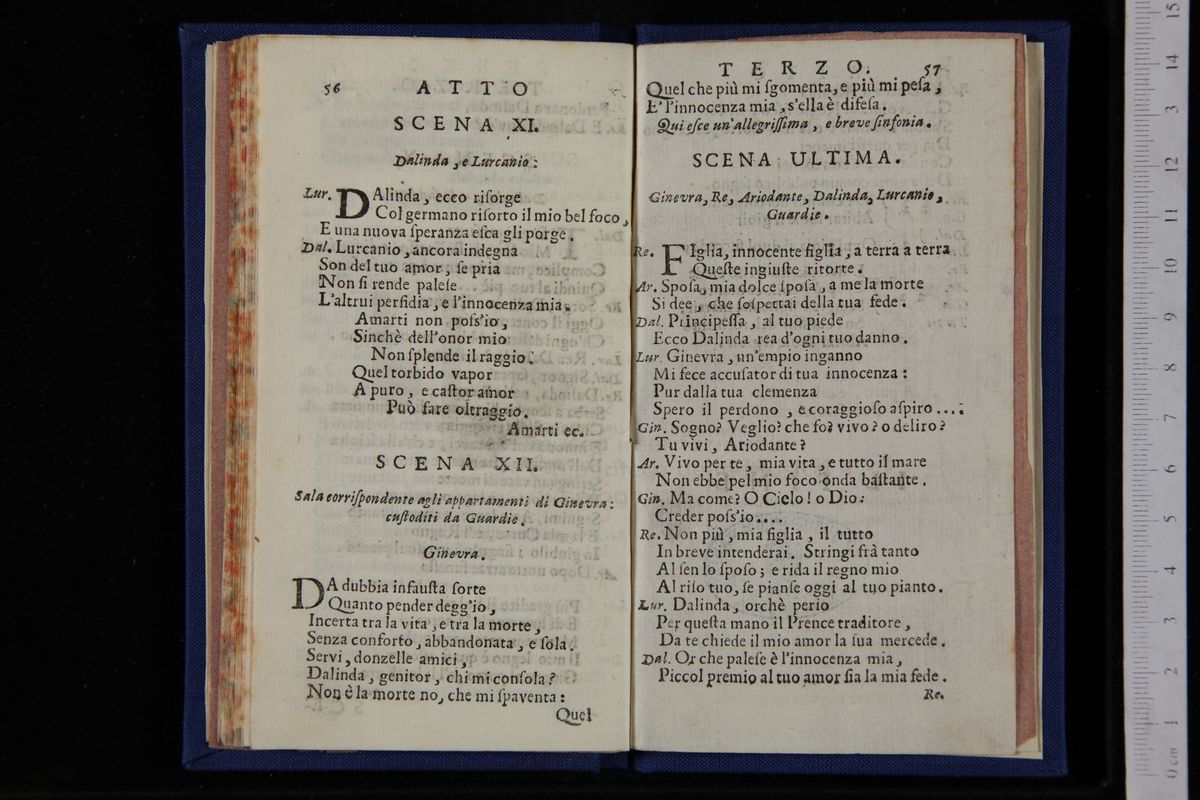 56 ATTO
SCENA XI.
Dalinda, e Lurcanio:
Lur. DAlinda, ecco riſorge
Col germano riſorto il mio bel foco,
E una nuova ſperanza eſca gli porge.
Dal. Lurcanio, ancora indegna
Son del tuo amor, ſe pria
Non ſi rende paleſe
L'altrui perfidia, e l'innocenza mia.
Amarti non poſs'io,
Sinchè dell'onor mio
Non ſplende il raggio:
Quel torbido vapor
A puro, e caſtor amor
Può fare oltraggio.
Amarti ec.
SCENA XII.
Sala corriſpondente agli appartamenti di Ginevra:
cuſtoditi da Guardie.
Ginevra.
DA dubbia infauſta ſorte
Quanto pender degg'io,
Incerta tra la vita, e tra la morte,
Senza conforto, abbandonata, e ſola.
Servi, donzelle amici,
Dalinda, genitor, chi mi conſola?
Non è la morte no, che mi ſpaventa:
Quel
TERZO. 57
Quel che più mi ſgomenta, e più mi peſa,
E' l'innocenza mia, s'ella è difeſa.
Qui eſce un'allegriſſima, e breve ſinfonia.
SCENA ULTIMA.
Ginevra, Re, Ariodante, Dalinda, Lurcanio,
Guardie.
Re. FIglia, innocente figlia, a terra a terra
Queſte ingiuſte ritorte.
Ar. Spoſa, mia dolce ſpoſa, a me la morte
Si dee, che ſoſpettai della tua fede.
Dal. Principeſſa, al tuo piede
Ecco Dalinda rea d'ogni tuo danno.
Lur. Ginevra, un'empio inganno
Mi fece accuſator di tua innocenza:
Pur dalla tua clemenza
Spero il perdono, e coraggioſo aſpiro....
Gin. Sogno? Veglio? che fo? vivo? o deliro?
Tu vivi, Ariodante?
Ar. Vivo per te, mia vita, e tutto il mare
Non ebbe pel mio foco onda baſtante.
Gin. Ma come? O Cielo! o Dio:
Creder poſs'io....
Re. Non più, mia figlia, il tutto
In breve intenderai. Stringi frà tanto
Al ſen lo ſpoſo; e rida il regno mio
Al riſo tuo, ſe pianſe oggi al tuo pianto.
Lur. Dalinda, orchè perio
Per queſta mano il Prence traditore,
Da te chiede il mio amor la ſua mercede.
Dal. Or che paleſe è l'innocenza mia,
Piccol premio al tuo amor ſia la mia fede.
Re.
0 cm 1 2 3 4 5 6 7 8 9 10 11 12 13 14 15